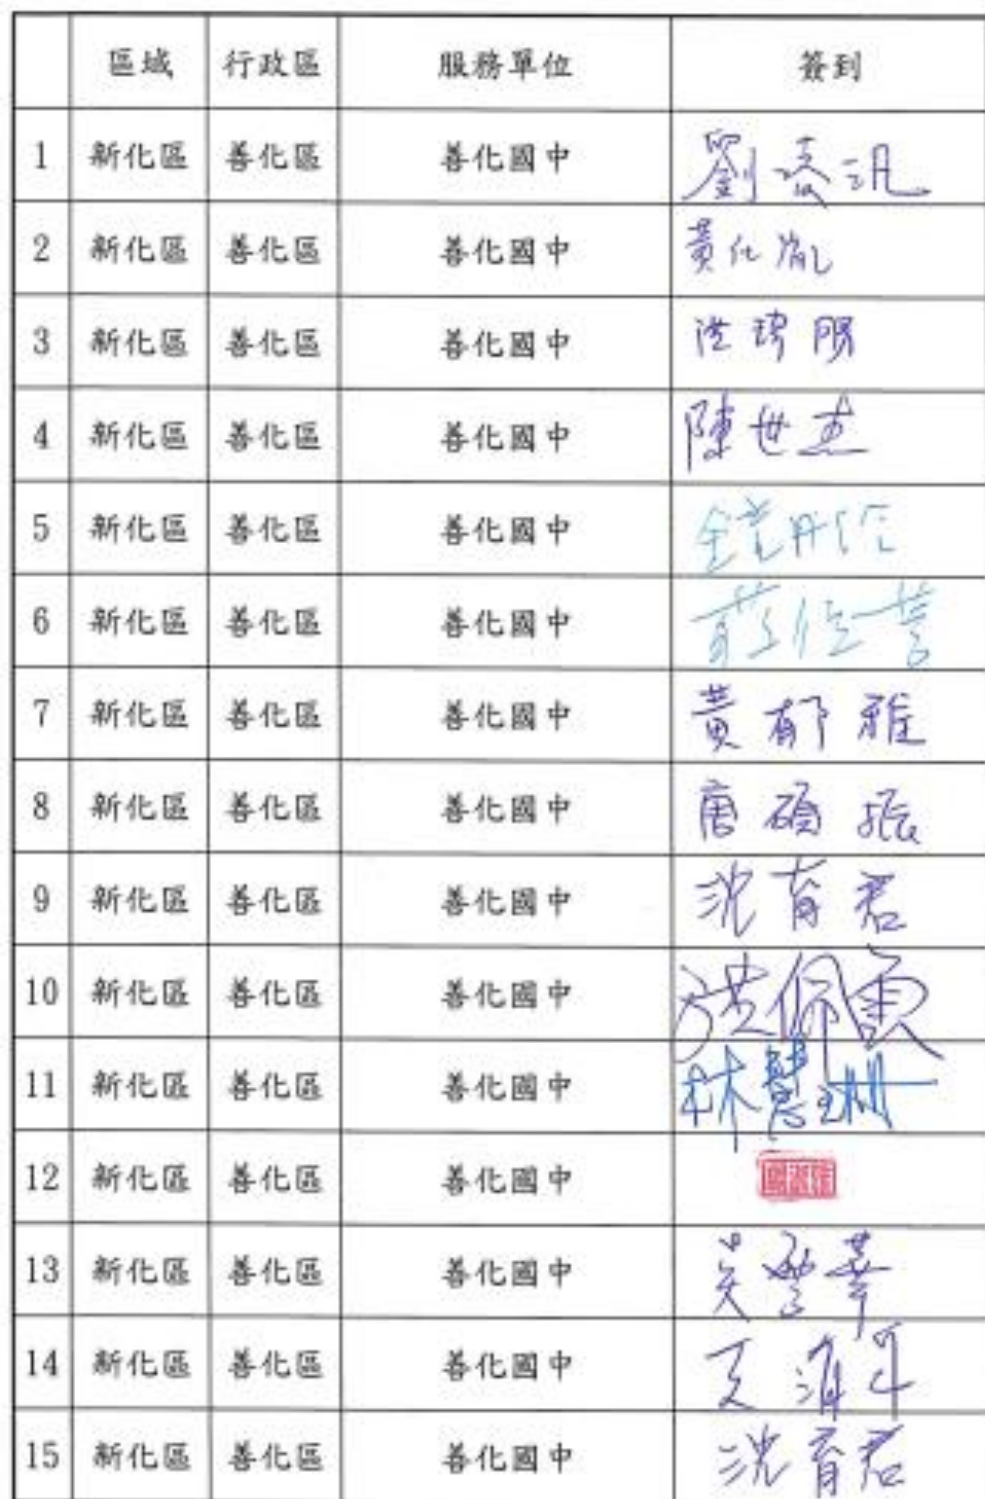 區域 行政區 服務單位 簽到
1 新化區 善化區 善化國中 劉
2 新化區 善化區 善化國中 黃化
3 新化區 善化區 善化國中 洪
4 新化區 善化區 善化國中 陳世杰
5 新化區 善化區 善化國中
6 新化區 善化區 善化國中
7 新化區 善化區 善化國中 黃郁雅
8 新化區 善化區 善化國中 唐碩振
9 新化區 善化區 善化國中 沈育君
10 新化區 善化區 善化國中 洪佩
11 新化區 善化區 善化國中 林慧珊
12 新化區 善化區 善化國中
13 新化區 善化區 善化國中 吳
14 新化區 善化區 善化國中
15 新化區 善化區 善化國中 沈育君